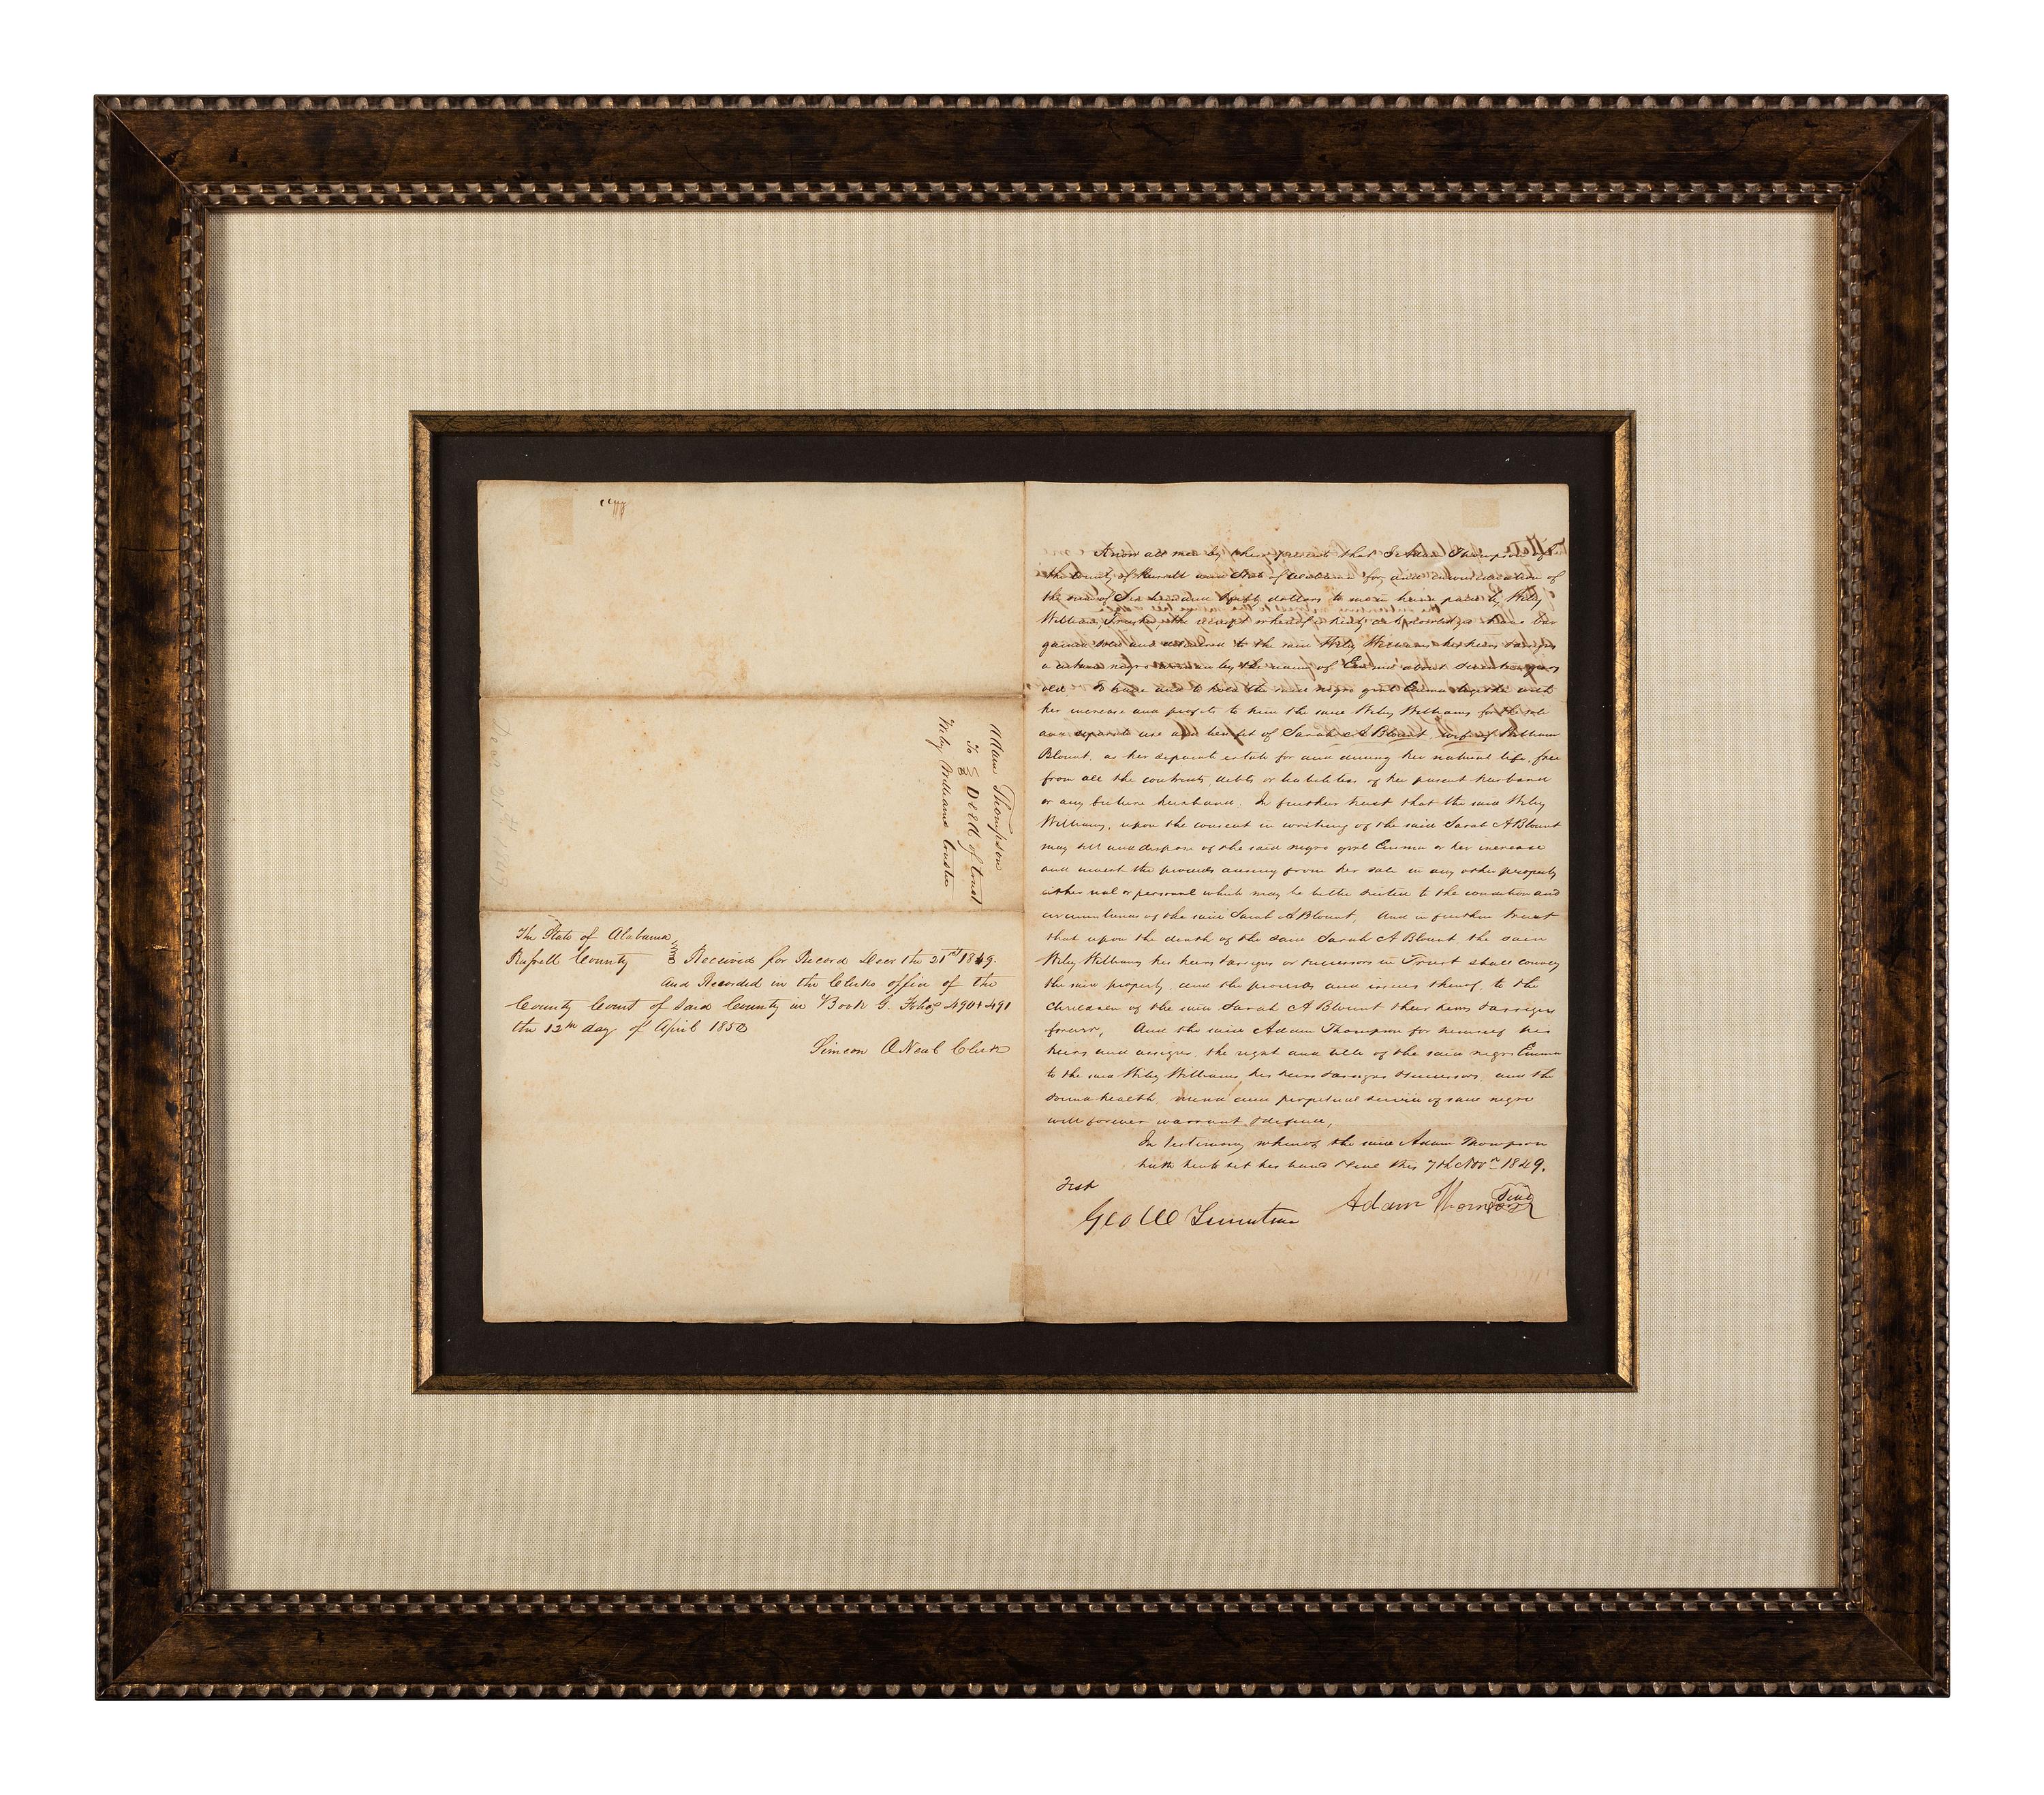 Adam Thompson
To Deed of trust
Wiley Williams trustee
The State of Alabama
Russell County Received for Record Decr the 21st 1849.
and Recorded in the Clerks office of the
County Court of Said County in Book G. Folios 490 + 491
the 12th day of April 1850
Simeon ONeal Clerk
Know all men by these presents that I Adam Thompson of
the County of Russell and State of Alabama for and in consideration of
the sum of Six hundred & fifty dollars to me in hand paid by Wiley
Williams Trustee, the receipt whereof is hereby acknowledged have bar
gained sold and delivered to the said Wiley Williams his heirs & assigns
a certain negro by the name of Emma about years
old To have and to hold the said negro girl Emma together with
her increase and profits to him the said Wiley Williams for the sole
and separate use and benefit of Sarah A Blount wife of William
Blount, as her separate estate for and during her natural life, free
from all the contracts, debts or liabilities of her present husband
or any future husband. In further trust that the said Wiley
Williams, upon the consent in writing of the said Sarah A Blount
may sell and dispose of the said negro girl Emma or her increase
and invest the proceeds arising from her sale in any other property
either real or personal which may be better suited to the condition and
circumstances of the said Sarah A Blount, And in further trust
that upon the death of the said Sarah A Blount the said
Wiley Williams his heirs & assigns or successors in Trust shall convey
the said property, and the proceeds and issues thereof, to the
children of the said Sarah A Blount their heirs & assigns
forever, And the said Adam Thompson for himself his
heirs and assigns, the right and title of the said negro Emma
to the said Wiley Williams, his heirs & assigns & successors, and the
sound health, mind and perpetual service of said negro
will forever warrant & defend,
In testimony whereof the said Adam Thompson
hath hereto set his hand & seal this 7th Novr 1849.
Test
Adam Thompson Seal
Geo W